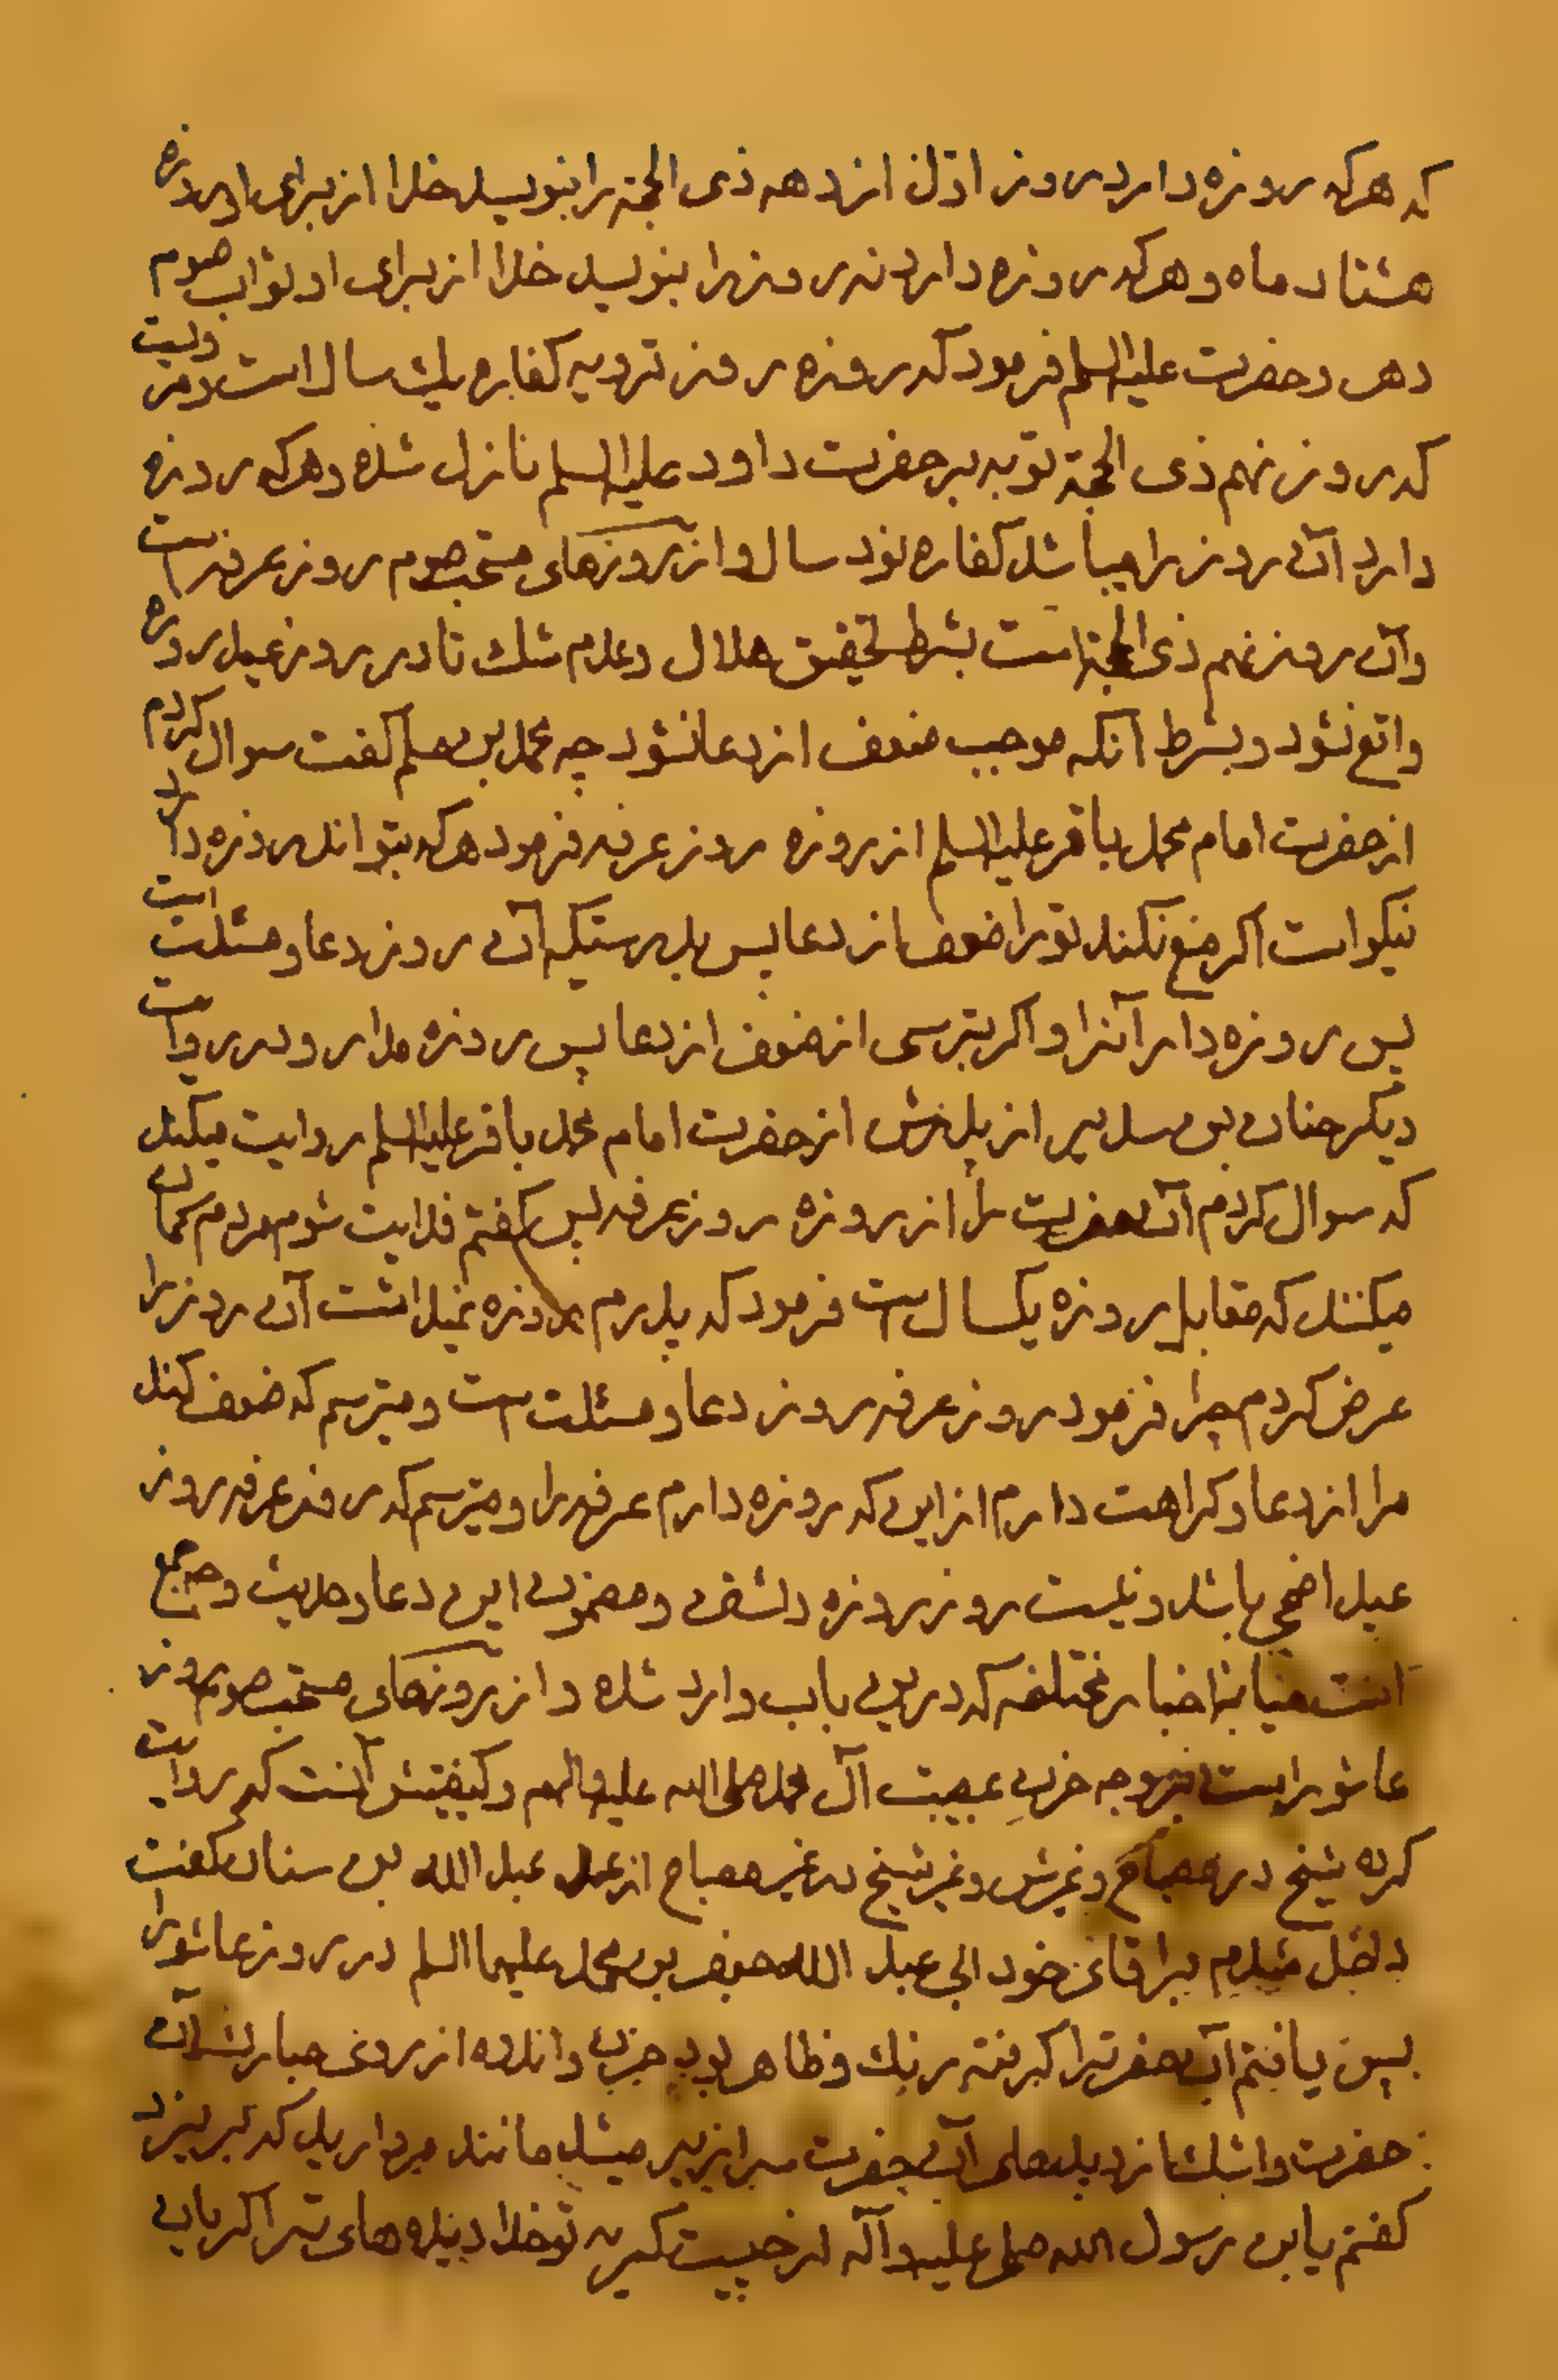 که هرکه روزه دارد روز اوّل از دهه ذی الحجّة را بنویسد خدا از برای او روزه
هشتاد ماه و هرکه روزه دارد نه روز را بنویسد خدا از برای او ثواب صوم
دهر و حضرت علیه السلم فرمود که روزه روز ترویه کفاره یك سال است و مرویست
که روز نهم ذی الحجّة توبه بر حضرت داود علیه السلم نازل شده و هرکه روزه
دارد آن روز را میباشد کفاره نود سال و از روزهای مستحب صوم روز عرفه است
وآن روز نهم ذی الحجّة است بشرط تحقیق هلال و عدم شك تا در روز عید روزه
واقع نشود و بشرط آنکه موجب ضعف از دعا نشود چه محمد بن مسلم گفت سوال کردم
از حضرت امام محمد باقر علیه السلم از روزه روز عرفه فرمود هرکه بتواند روزه دارد
نیکو است اکر منع نکند تو را ضعف از دعا پس بدرستیکه آن روز دعا و مسئلت است
پس روزه دار آنرا و اکر بترسی از ضعف از دعا پس روزه مدار و در روایت
دیکر حنان بن سدیر از پدرش از حضرت امام محمد باقر علیه السلم روایت میکند
که سوال کردم آن حضرت را از روزه روز عرفه پس کفتم فدایت شوم مردم کمان
میکنند که مقابل روزه یکسال است فرمود که پدرم روزه نمیداشت آن روز را
عرض کردم چرا فرمود روز عرفه روز دعا و مسئلت است و میترسم که ضعف کند
مرا از دعا و کراهت دارم از این که روزه دارم عرفه را و میترسم که روز عرفه روز
عید اضحی باشد و نیست روز روزه داشتن و مضمون این دعا و حدیث وجه جمع
است میانه اخبار مختلفه که در این باب وارد شده و از روزهای مستحب صوم روز
عاشورا است بر وجه حزن مصیبت آل محمد صلی الله علیه والهم و کیفیتش آنست که روایت
کرده شیخ در مصباح و غیرش و غیر شیخ در غیر مصباح از عبد الله بن سنان گفت
داخل شدم بر اقای خود ابی عبد الله جعفر بن محمد علیهما السلم در روز عاشورا
پس یافتم آن حضرت را کرفته رنك و ظاهر بود حزن و اندوه از روی مبارکشان
حضرت و اشك از دیدهای آن حضرت سرازیر میشد مانند مرواریدی که بریزد
کفتم یابن رسول الله صلی علیه وآله از چیست کریه تو خدا دیده های ترا کریان